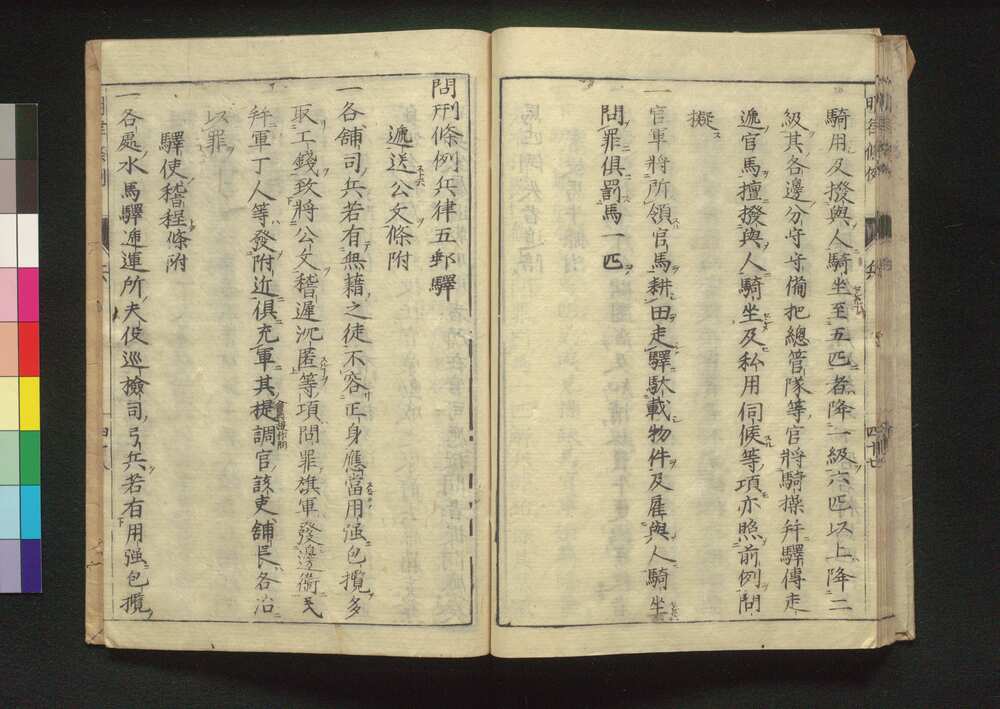 騎用及撥與人騎坐至五匹者降一級六匹以上降二
級其各邊分守守備把總管隊等官將騎操并驛傳走
逓官馬擅撥與人騎坐及私用伺候等項亦照前例問
擬
一官軍將所領官馬耕田走驛馱載物件及雇與人騎坐
問罪俱罰馬一匹
問刑條例兵律五郵驛
逓送公文條附
一各舖司兵若有無藉之徒不容正身應當用强包攬多
取工錢致將公文稽遲沉匿等項問罪旗軍發邊衞民
并軍丁人等發附近俱充軍其提調官該吏舖長各治
以罪
驛使稽程條附
一各處水馬驛逓運所夫役巡檢司弓兵若有用强包攬